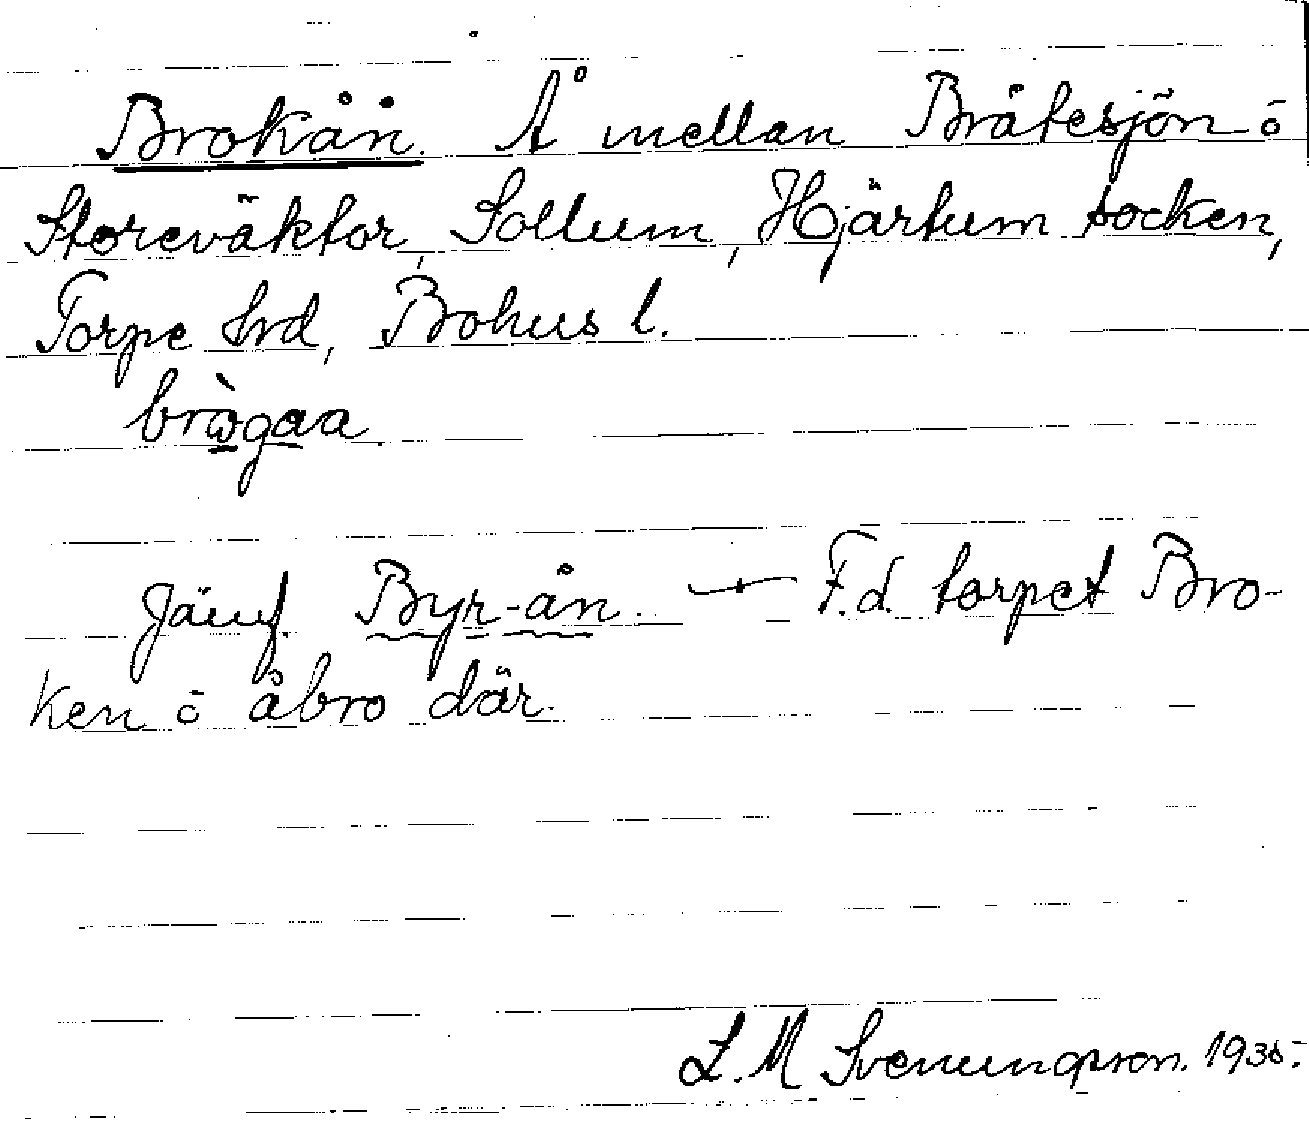 Brokån. Å mellan Bråtesjön ō
Storeväktor, Sollum, Hjärtum socken,
Torpe hrd, Bohus l.
brògaa
Jämf. Byr-ån. — F.d. torpet Bro-
ken ō åbro där.
L. M Svenungsson. 1935.